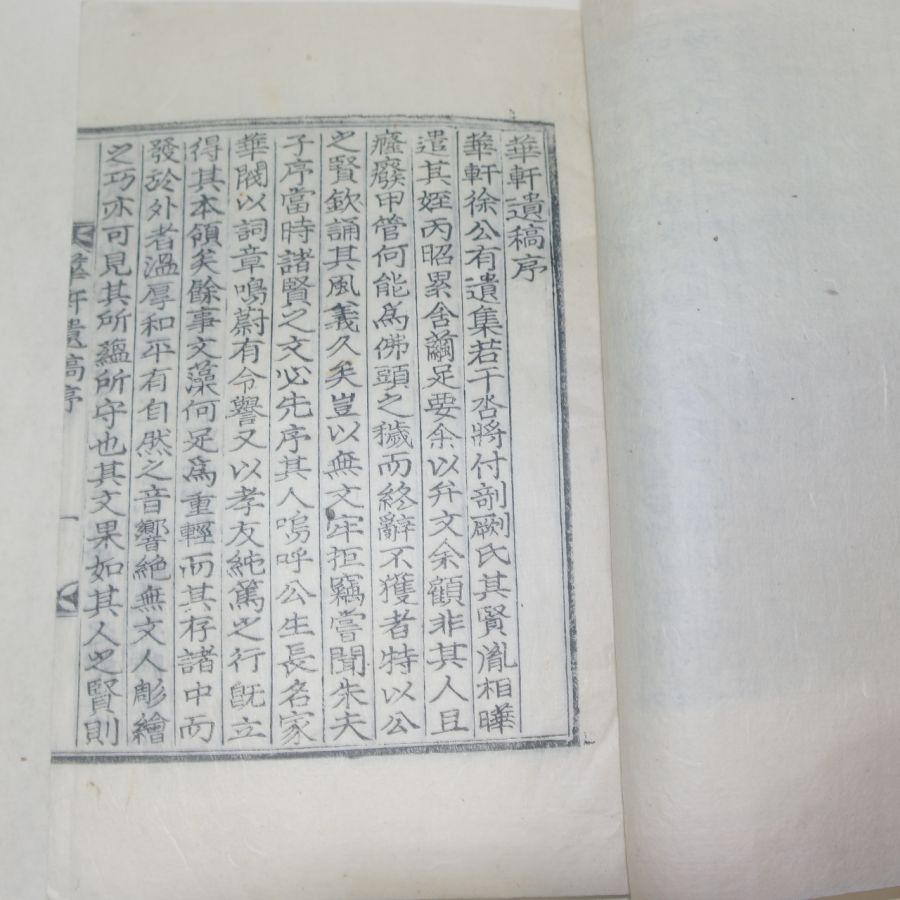 華軒遺稿序
華軒徐公有遺集若干呇將付剞劂氏其賢胤相曄
遣其姪丙昭累舍繭足要余以弁文余顧非其人且
癃癈甲管何能爲佛頭之穢而終辭不獲者特以公
之賢欽誦其風義久矣豈以無文牢拒竊嘗聞朱夫
子序當時諸賢之文必先序其人嗚呼公生長名家
華閥以詞章鳴蔚有令譽又以孝友純篤之行旣立
得其本領矣餘事文藻何足爲重輕而其存諸中而
發於外者溫厚和平有自然之音響絶無文人彫繪
之巧亦可見其所蘊所守也其文果如其人之賢則
華軒遺稿序 一